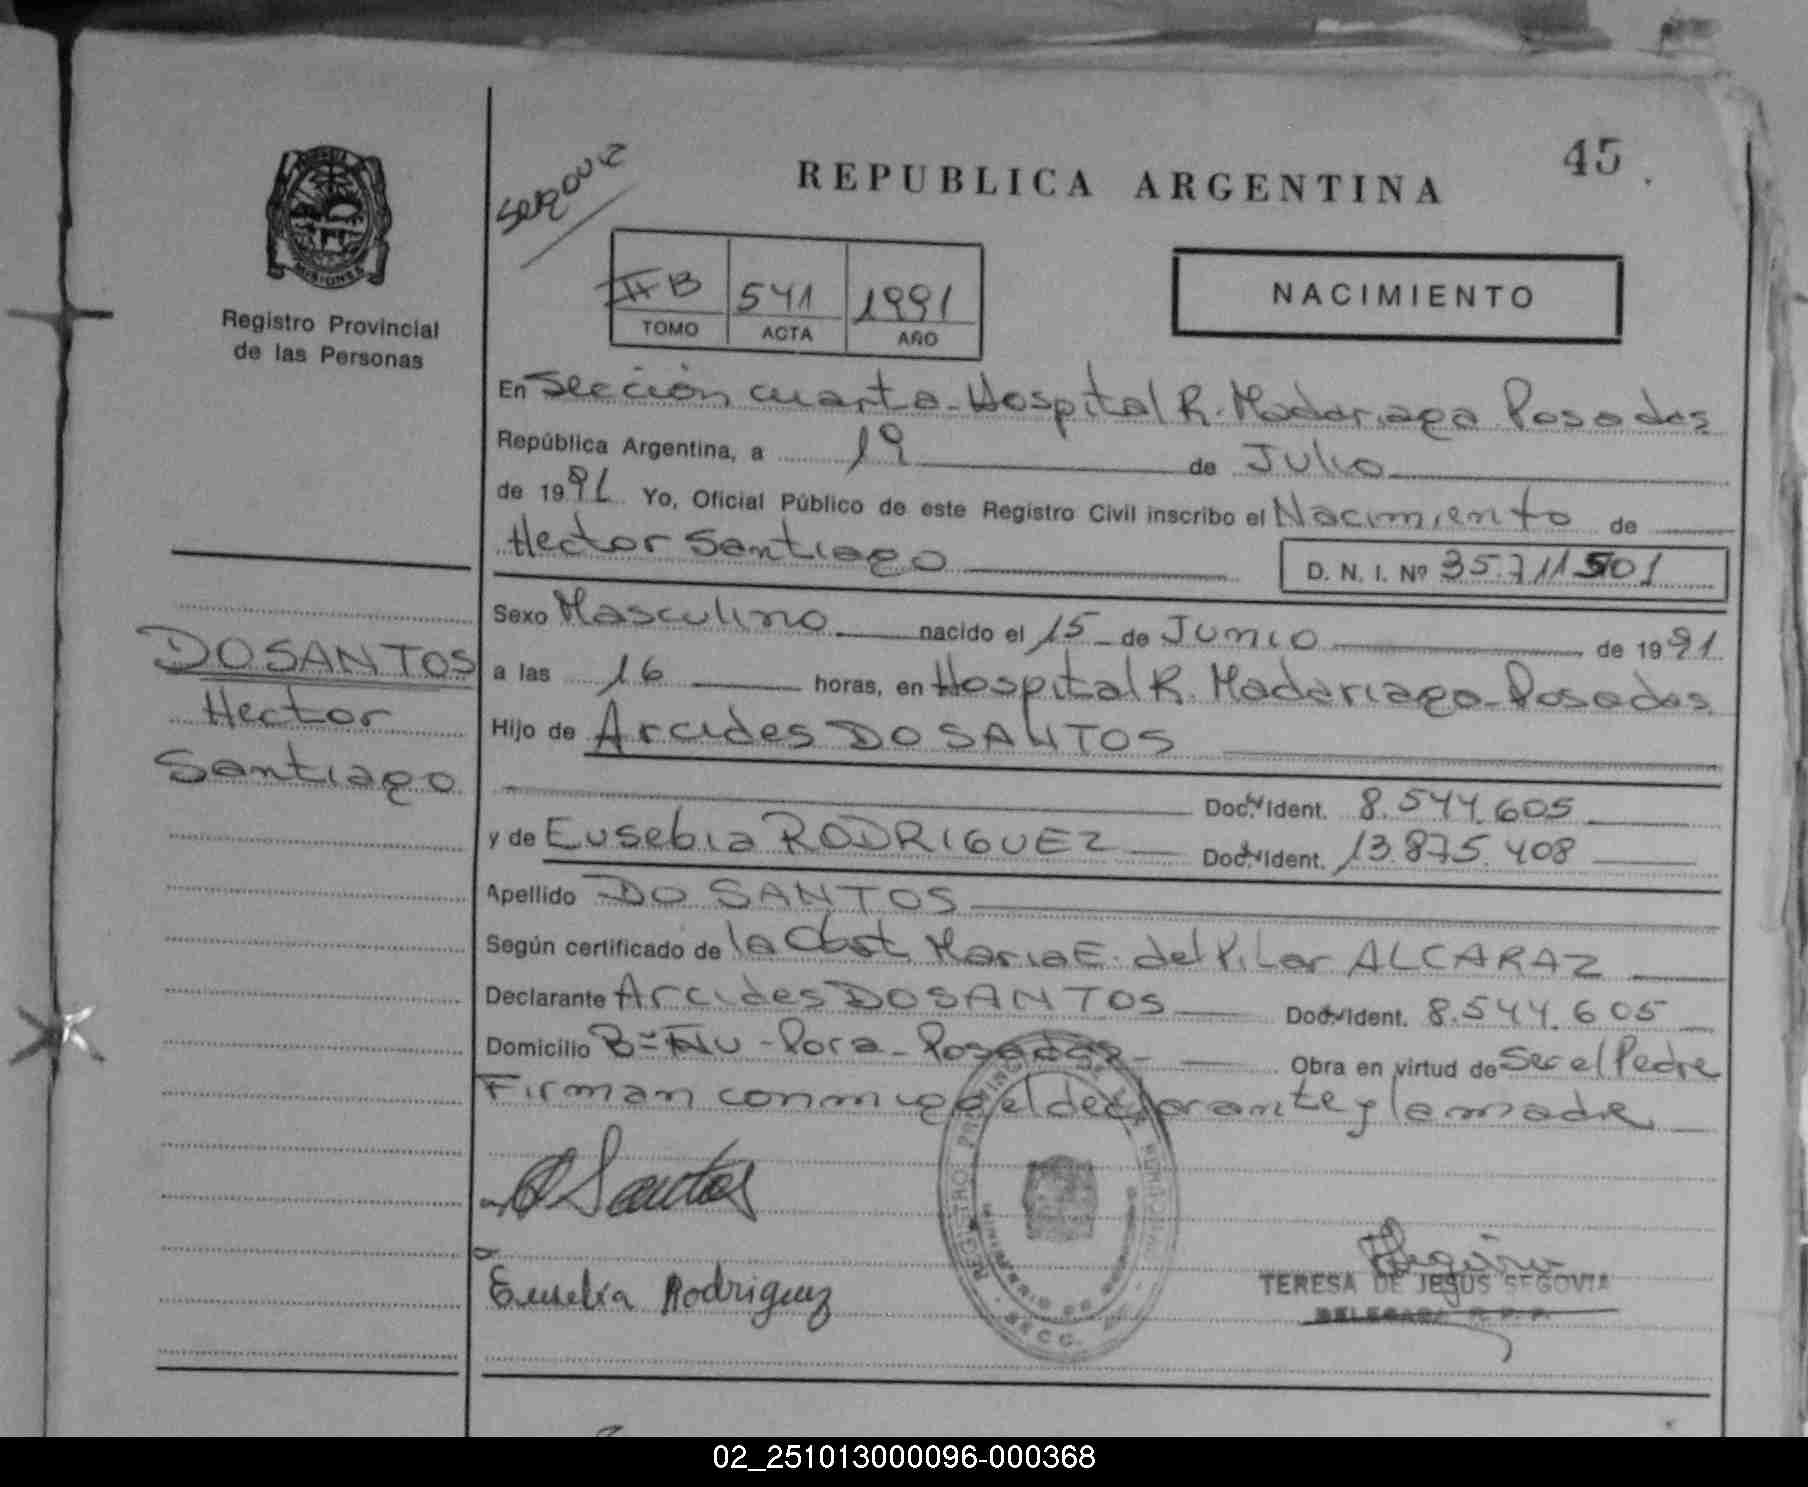 45
SEROUZ
REPUBLICA ARGENTINA
MISIONES
Registro Provincial
de las Personas
IIB 541 1991
TOMO ACTA AÑO
NACIMIENTO
En Sección cuarta - Hospital R. Madariaga Posadas
República Argentina, a 19 de Julio
de 1991 Yo, Oficial Público de este Registro Civil inscribo el Nacimiento de
Hector Santiago
D. N. I. Nº 35.711501
Sexo Masculino nacido el 15 - de Junio de 1991
a las 16 horas, en Hospital R. Madariaga - Posadas
Hijo de Arcides DO SANTOS
Doc. Ident. 8.544.605
y de Eusebia RODRIGUEZ Doc. Ident. 13.875.408
Apellido DO SANTOS
Según certificado de la Obst. Maria E. del Pilar ALCARAZ
Declarante Arcides DO SANTOS Doc. Ident. 8.544.605
Domicilio Bº Ñu - Pora - Posadas - Obra en virtud de Ser el Padre
Firman conmigo el declarante y la madre
DO SANTOS
Hector
Santiago
Santos
Eusebia Rodriguez
REGISTRO PROVINCIAL DE LAS PERSONAS
MINISTERIO DE GOBIERNO
SECC.
TERESA DE JESUS SEGOVIA
DELEGADA R. P. P.
02_251013000096-000368